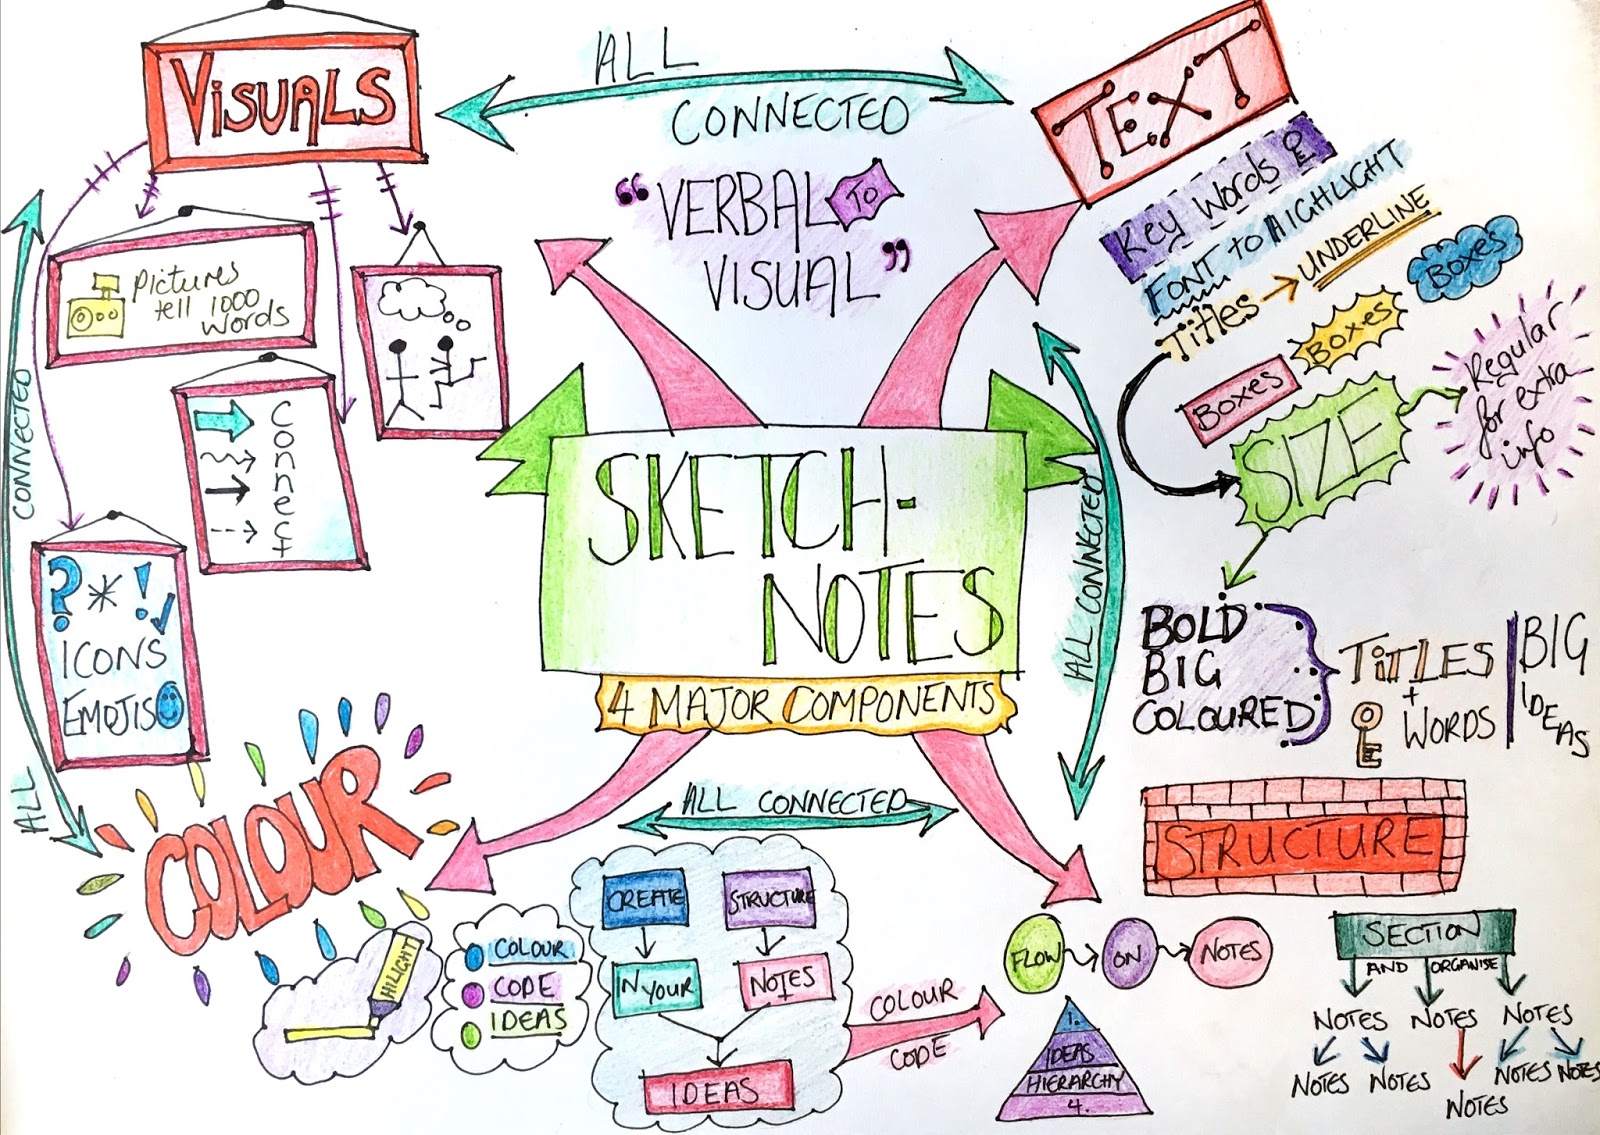 VISUALS
ALL
CONNECTED
TEXT
"VERBAL TO
VISUAL"
Key Words
FONT to HIGHLIGHT
Titles → UNDERLINE
Boxes
Boxes
Boxes
SIZE
Regular
for extra
info
Pictures
tell 1000
words
Connect
? * ! ✓
ICONS
EMOJIS
ALL CONNECTED
SKETCH-
NOTES
4 MAJOR COMPONENTS
ALL CONNECTED
BOLD
BIG
COLOURED
TITLES
+
WORDS
BIG
IDEAS
COLOUR
HILIGHT
COLOUR
CODE
IDEAS
ALL CONNECTED
CREATE
STRUCTURE
IN YOUR
NOTES
IDEAS
COLOUR
CODE
STRUCTURE
FLOW
ON
NOTES
1.
IDEAS
HIERARCHY
4.
SECTION
AND ORGANISE
NOTES NOTES NOTES
NOTES NOTES NOTES NOTES NOTES